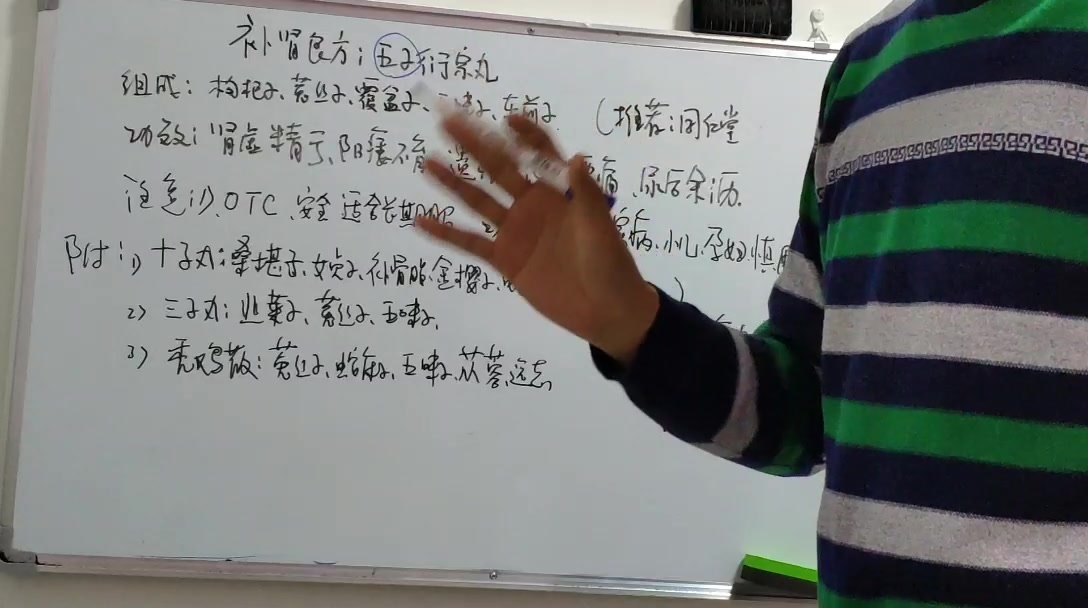 补肾良方：五子衍宗丸
组成：枸杞子、菟丝子、覆盆子、车前子 （推荐：同仁堂
功效：肾虚精亏、阳痿不育、遗 痛、尿后余沥.
注意：1）、OTC、安全 适合长期服 病、小儿、孕妇、慎用
附：1）十子丸：桑椹子、女贞子、补骨脂、金樱子、
2）三子丸：韭菜子、菟丝子、五味子、
3）秃鸡散：菟丝子、蛇床子、五味子、苁蓉、远志、